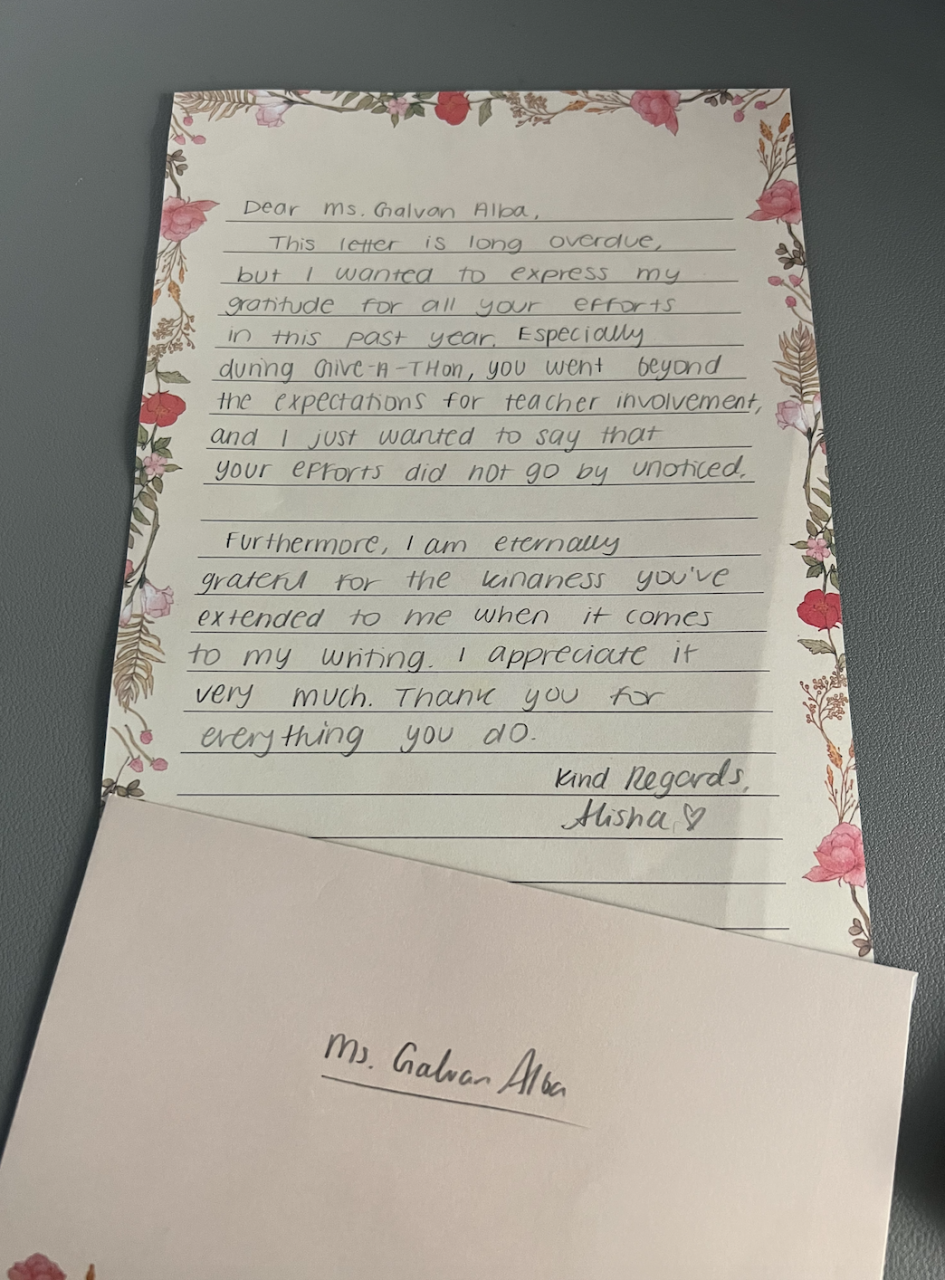 Dear Ms. Galvan Alba,
This letter is long overdue,
but I wanted to express my
gratitude for all your efforts
in this past year. Especially
during Give-A-THon, you went beyond
the expectations for teacher involvement,
and I just wanted to say that
your efforts did not go by unoticed.
Furthermore, I am eternally
grateful for the kindness you've
extended to me when it comes
to my writing. I appreciate it
very much. Thank you for
everything you do.
Kind Regards,
Alisha ♡
Ms. Galvan Alba